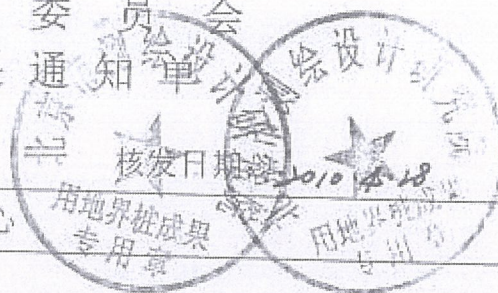 委员会
通知单
核发日期 2010.4.28
北京 绘设计
用地界桩成果
专用章
绘设计研究
用地界桩成果
专用章